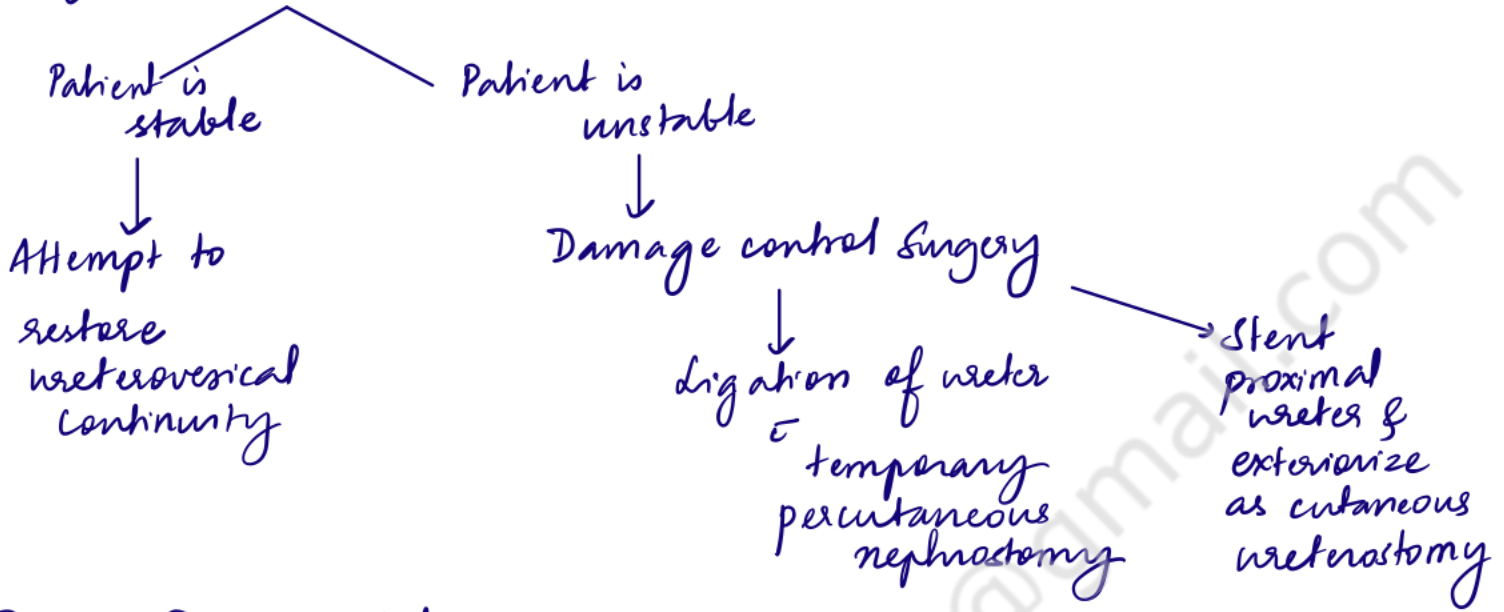 Patient is
stable
Patient is
unstable
Attempt to
restore
ureterovesical
continuity
Damage control Surgery
Ligation of ureter
c̄
temporary
percutaneous
nephrostomy
Stent
proximal
ureter &
exteriorize
as cutaneous
ureterostomy
@gmail.com